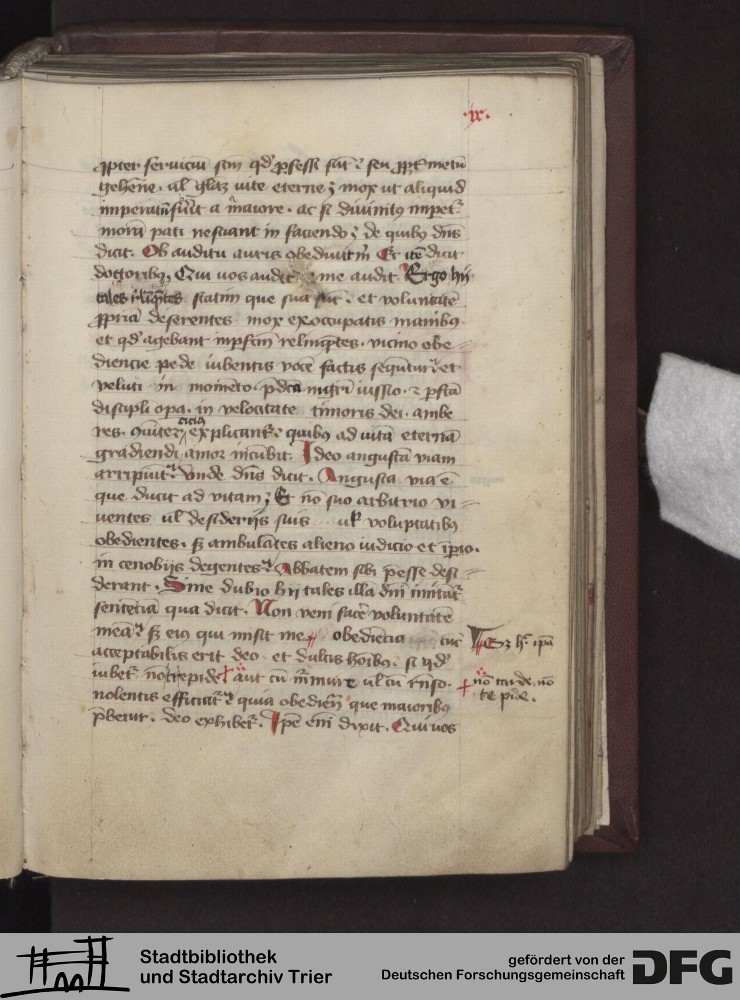 ·ix·
ꝓpter seruiciū scm̄ qd' ꝓfessi sūt · seu ꝓpt' metū
gehēne · ul' glīaꝫ uite eterne ; mox ut aliquid
imperatū fūit a maiore · ac si diuinitꝰ impet᷑
moram pati nesciant in faciendo ; de quibꝫ dn̄s
dicit . Ob auditu auris obediuit m̄ Et itē dicit
doctoribꝫ, Qui uos audit me audit Ergo hij
tales reliq̄ntes statim que sua sūt · et voluntatē
ꝓpriā deserentes mox exoccupatis manibꝫ ·
et qd' agebant inpfcm̄ relinq̄tes · vicino obe
diencie pede iubentis vocē factis sequūtur et
veluti in momēto · p̄dca mgr̄i iussio · ⁊ pfcā
discipli opa · in velocitate timoris dei · ambe
res · cōiiter ciciꝰ explicant᷑ quibꝫ ad uitā eternā
gradiendi amor incūbit . Ideo angustā uiam
arripiūt . Vnde dn̄s dicit . Angusta via ē
que ducit ad vitam ; Et nō suo arbitrio vi
uentes ul' desiderijs suis ul' voluptatibꝫ
obedientes . sꝫ ambulātes alieno iudicio et īpio .
in cenobijs degentes Abbatem sibi p̄esse desi
derant . Sine dubio hij tales illā dn̄i imitāt᷑
sentētiā qua dicit . Non veni facē voluntatē
meā sꝫ eiꝰ qui misit me obediēcia tūc
Sꝫ h' ip̄a
acceptabilis erit deo et dulcis hoībꝫ . si qd'
iubet᷑ nō trepide aut cū m̄mure ul' cū rn̄so .
nō tarde nō
tepide .
nolentis efficiat᷑ quia obediēn̄ que maioribꝫ
p̄betur . deo exhibet᷑ . Ipē eni dixit . Qui uos
Stadtbibliothek
und Stadtarchiv Trier
gefördert von der
Deutschen Forschungsgemeinschaft
DFG